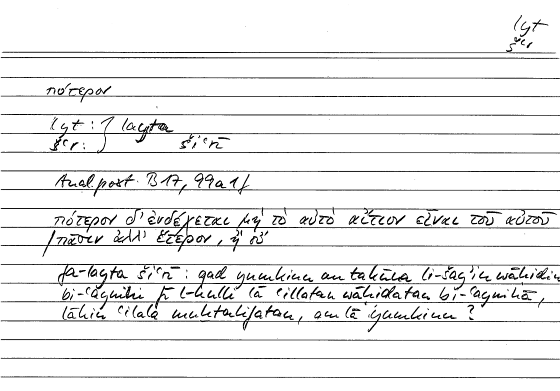 lyt
šʿr
πότερον
lyt : } layta
šʿr : šiʿrī
Anal. post. B 17, 99a1f
πότερον δ' ἐνδέχεται μὴ τὸ αὐτὸ αἴτιον εἶναι τοῦ αὐτοῦ
πᾶσιν ἀλλ' ἕτερον, ἢ οὔ
fa-layta šiʿrī : qad yumkinu an takūna li-šayʾin wāḥidin
bi-ʿaynihi fī l-kulli lā ʿillatan wāḥidatan bi-ʿaynihā,
lākin ʿilala muḫtalifatan, am lā yumkinu ?